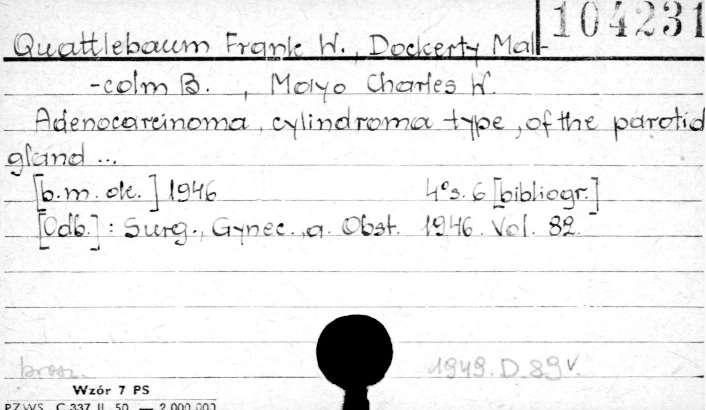 104231
Quattlebaum Frank W., Dockerty Mal-
-colm B., Mayo Charles W.
Adenocarcinoma, cylindroma type, of the parotid
gland ...
[b.m. dr.] 1946 4°s. 6 [bibliogr.]
[Odb.]: Surg., Gynec., a. Obst. 1946. Vol. 82.
brosz. 1949. D. 89 v.
Wzór 7 PS
PZWS. C 337 II. 50. — 2 000 000